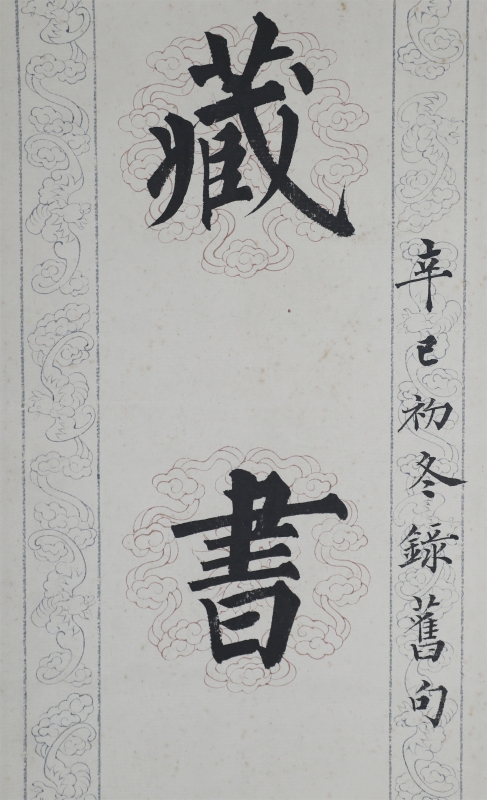 辛巳初冬錄舊句
藏書